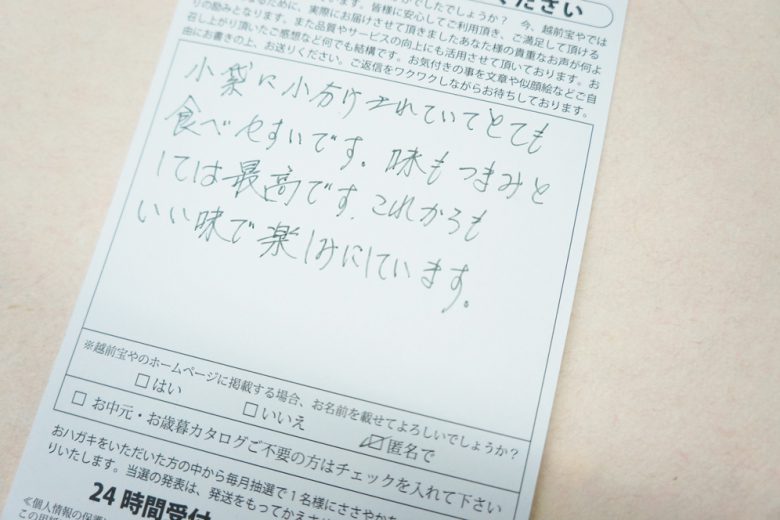 ください
でしたでしょうか？ 今、越前宝やでは
るために、実際にお届けさせて頂きましたあなた様の貴重なお声が何よ
りの励みとなります。また品質やサービスの向上にも活用させて頂いております。お
召し上がり頂いたご感想など何でも結構です。お気付きの事を文章や似顔絵などご自
由にお書きの上、お送りください。ご返信をワクワクしながらお待ちしております。
小袋に小分けされていてとても
食べやすいです。味もつまみと
しては最高です。これからも
いい味で楽しみにしています。
※越前宝やのホームページに掲載する場合、お名前を載せてよろしいでしょうか？
□はい □いいえ ☑匿名で
□ お中元・お歳暮カタログご不要の方はチェックを入れて下さい
おハガキをいただいた方の中から毎月抽選で１名様にささやか
りいたします。当選の発表は、発送をもってかえさせ
24時間受付
≪個人情報の保護